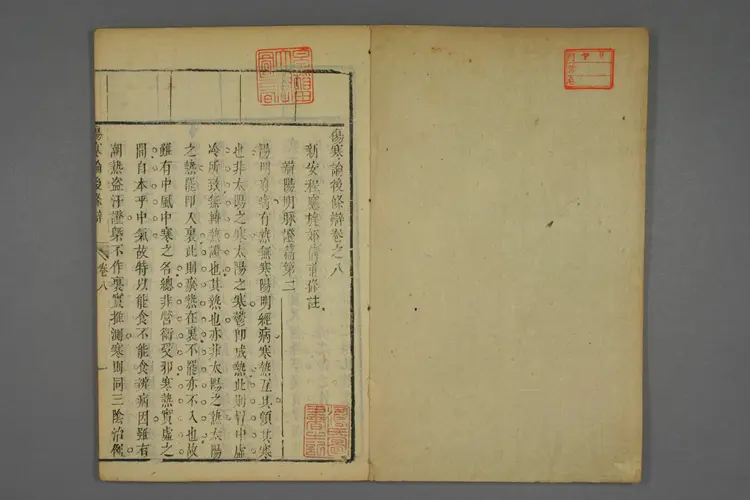 傷寒論後條辯卷之八
新安程應旄郊倩甫條註
辯陽明脉證篇第二
陽明府病有熱無寒陽明經病寒熱互其顧其寒
也非太陽之寒太陽之寒鬱卽成熱此則胃中虛
冷所致無轉熱證也其熱也亦非太陽之熱太陽
之熱罷卽入裏此則熱在裏不罷亦不入也故
雖有中風中寒之名總非營衛受邪寒熱實虛之
間自本乎中氣故特以能食不能食辨病因雖有
潮熱盗汗證槩不作裏實推測寒則同三陰治例
傷寒論後條辯
卷八
一